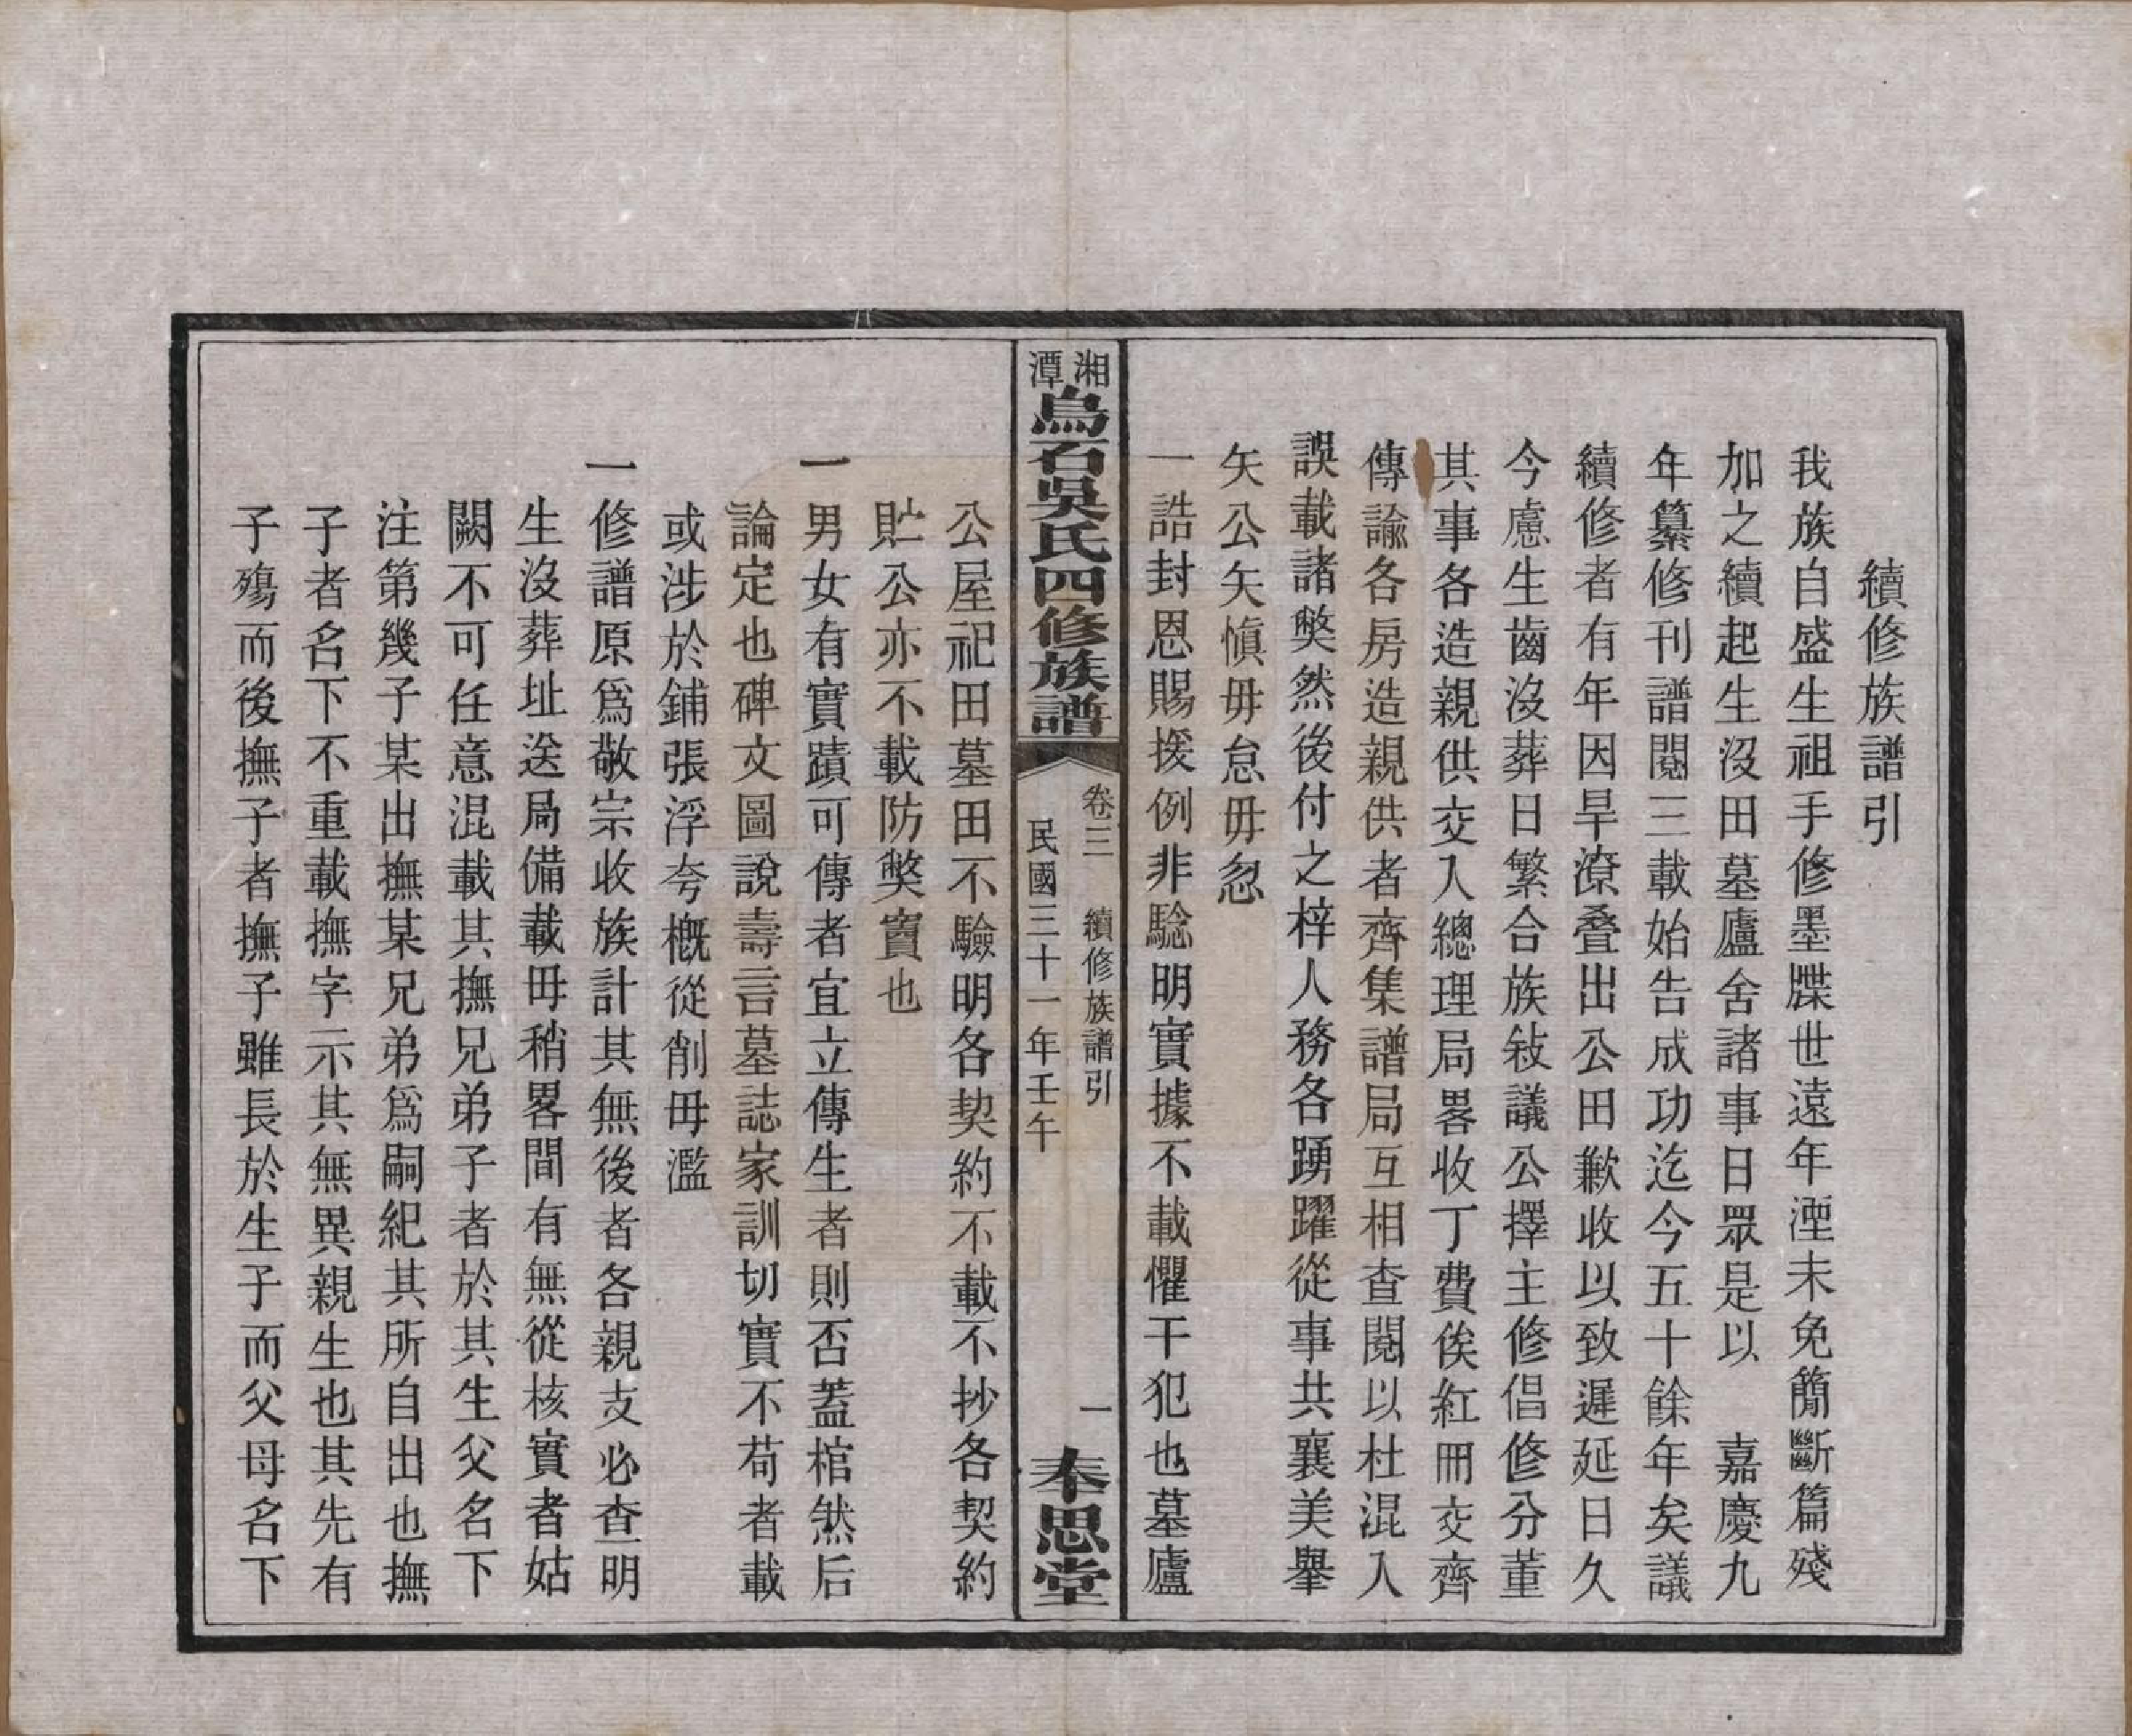 續修族譜引
我族自盛生祖手修墨牒世遠年湮未免簡斷篇殘
加之續起生沒田墓廬舍諸事日眾是以　嘉慶九
年纂修刊譜閱三載始告成功迄今五十餘年矣議
續修者有年因旱潦叠出公田歉收以致遲延日久
今慮生齒沒葬日繁合族敍議公擇主修倡修分董
其事各造親供交入總理局畧收丁費俟紅冊交齊
傳諭各房造親供者齊集譜局互相查閱以杜混入
誤載諸獘然後付之梓人務各踴躍從事共襄美舉
矢公矢慎毋怠毋忽
一誥封恩賜援例非騐明實據不載懼干犯也墓廬
湘潭烏石吳氏四修族譜
卷三　續修族譜引　一
民國三十一年壬午
奉思堂
公屋祀田墓田不驗明各契約不載不抄各契約
貯公亦不載防獘竇也
一男女有實蹟可傳者宜立傳生者則否蓋棺然后
論定也碑文圖說壽言墓誌家訓切實不苟者載
或涉於鋪張浮夸概從削毋濫
一修譜原爲敬宗收族計其無後者各親支必查明
生沒葬址送局備載毋稍畧間有無從核實者姑
闕不可任意混載其撫兄弟子者於其生父名下
注第幾子某出撫某兄弟爲嗣紀其所自出也撫
子者名下不重載撫字示其無異親生也其先有
子殤而後撫子者撫子雖長於生子而父母名下